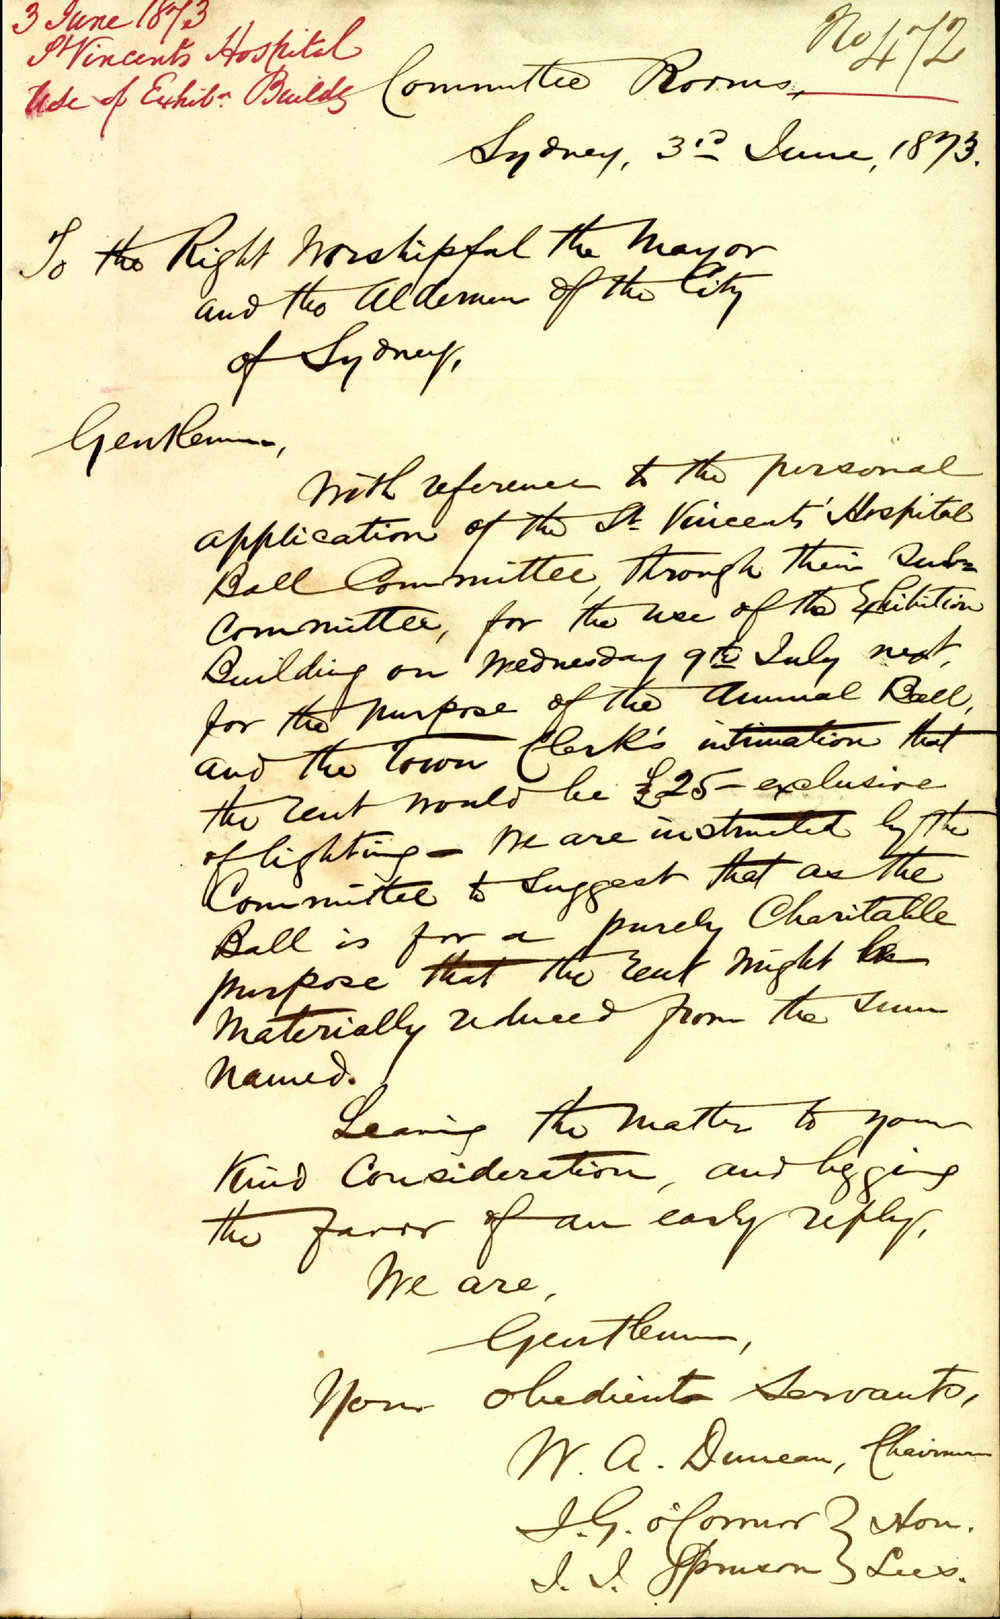 3 June 1873
St Vincents Hospital
Use of Exhibn Buildg
No 472
Committee Rooms,
Sydney, 3rd June, 1873.
To the Right Worshipful the Mayor
and the Aldermen of the City
of Sydney,
Gentlemen,
With reference to the personal
application of the St. Vincents' Hospital
Ball Committee, through their Sub=
Committee, for the use of the Exhibition
Building on Wednesday 9th July next,
for the purpose of the Annual Ball,
and the Town Clerk's intimation that
the rent would be £25 - exclusive
of lighting - We are instructed by the
Committee to suggest that as the
Ball is for a purely Charitable
purpose that the rent might be
materially reduced from the sum
named.
Leaving the matter to your
kind consideration, and begging
the favor of an early reply,
We are,
Gentlemen,
Your obedient Servants,
W. A. Duncan, Chairman
J. G. O'Connor } Hon.
J. J. Spruson } Secs.